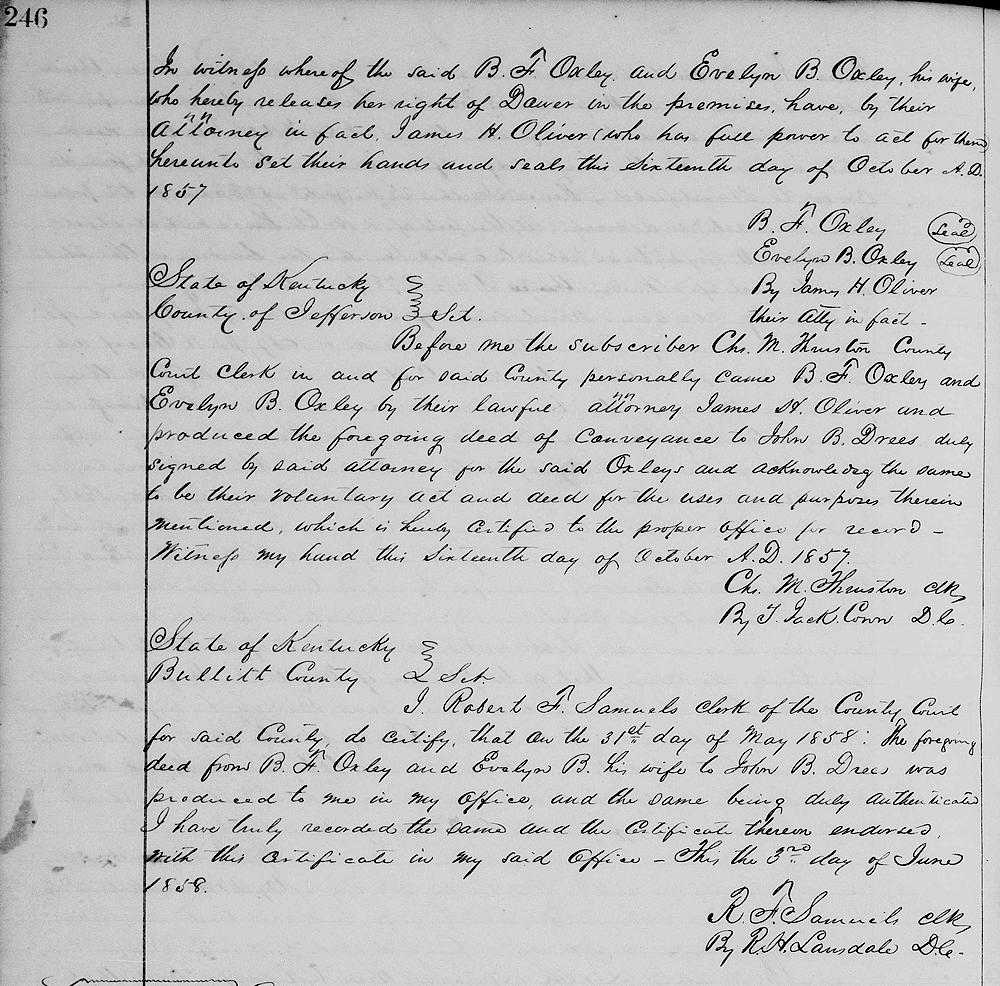 246
In witness whereof the said B. F. Oxley, and Evelyn B. Oxley, his wife,
who hereby releases her right of Dower in the premises, have, by their
Attorney in fact, James H. Oliver (who has full power to act for them)
hereunto set their hands and seals this Sixteenth day of October A.D.
1857
B. F. Oxley (Seal)
Evelyn B. Oxley (Seal)
By James H. Oliver
their Atty in fact -
State of Kentucky
County of Jefferson } Sct.
Before me the subscriber Chs. M. Thruston County
Court Clerk in and for said County personally came B. F. Oxley and
Evelyn B. Oxley by their lawful attorney James H. Oliver and
produced the foregoing deed of Conveyance to John B. Drees duly
signed by said attorney for the said Oxleys and acknowledg the same
to be their voluntary act and deed for the uses and purposes therein
mentioned, which is hereby certified to the proper office for record -
Witness my hand this Sixteenth day of October A.D. 1857.
Chs. M. Thruston clk
By T. Jack Conn D.C.
State of Kentucky
Bullitt County } Sct.
I. Robert F. Samuels clerk of the County Court
for said County do certify, that on the 31st day of May 1858: The foregoing
deed from B. F. Oxley and Evelyn B. his wife to John B. Drees was
produced to me in my office, and the same being duly authenticated
I have truly recorded the same and the Certificate thereon endorsed,
with this certificate in my said Office - This the 3rd day of June
1858.
R. F. Samuels clk
By R. H. Lansdale D.C.-